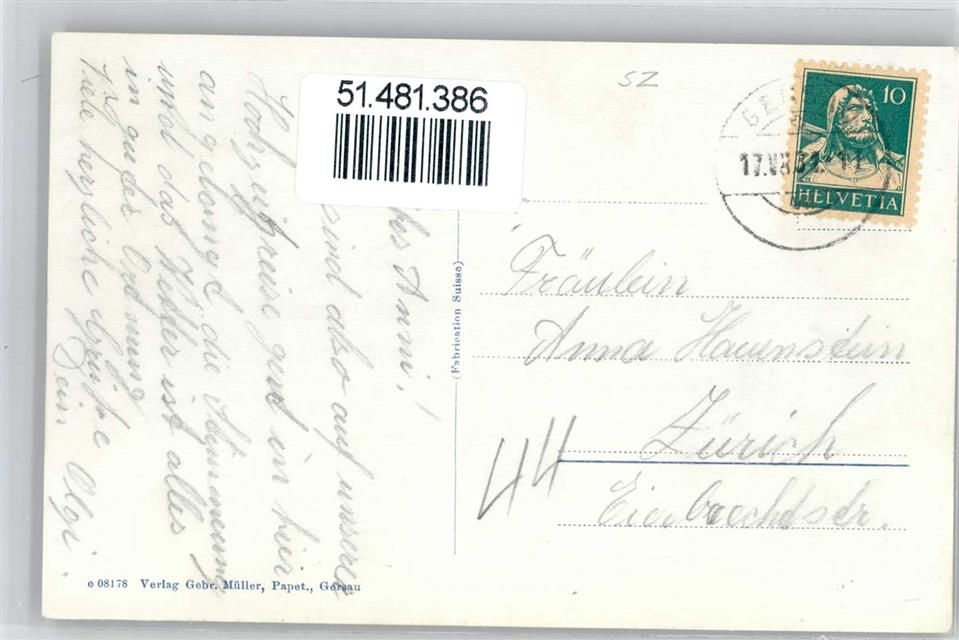 51.481.386
SZ
10
HELVETIA
GE
17.VIII.31.-11
Anni!
sind also auf unserer
Hochzeitsreise gut in hier
angelangt, die Stimmung
und das Wetter ist alles
in guter Ordnung
Viele herzliche Grüsse
Dein Olgi.
(Fabrication Suisse)
Fräulein
Anna Hauenstein
Zürich
Eierbrechtstr.
44
e 08178 Verlag Gebr. Müller, Papet., Gersau